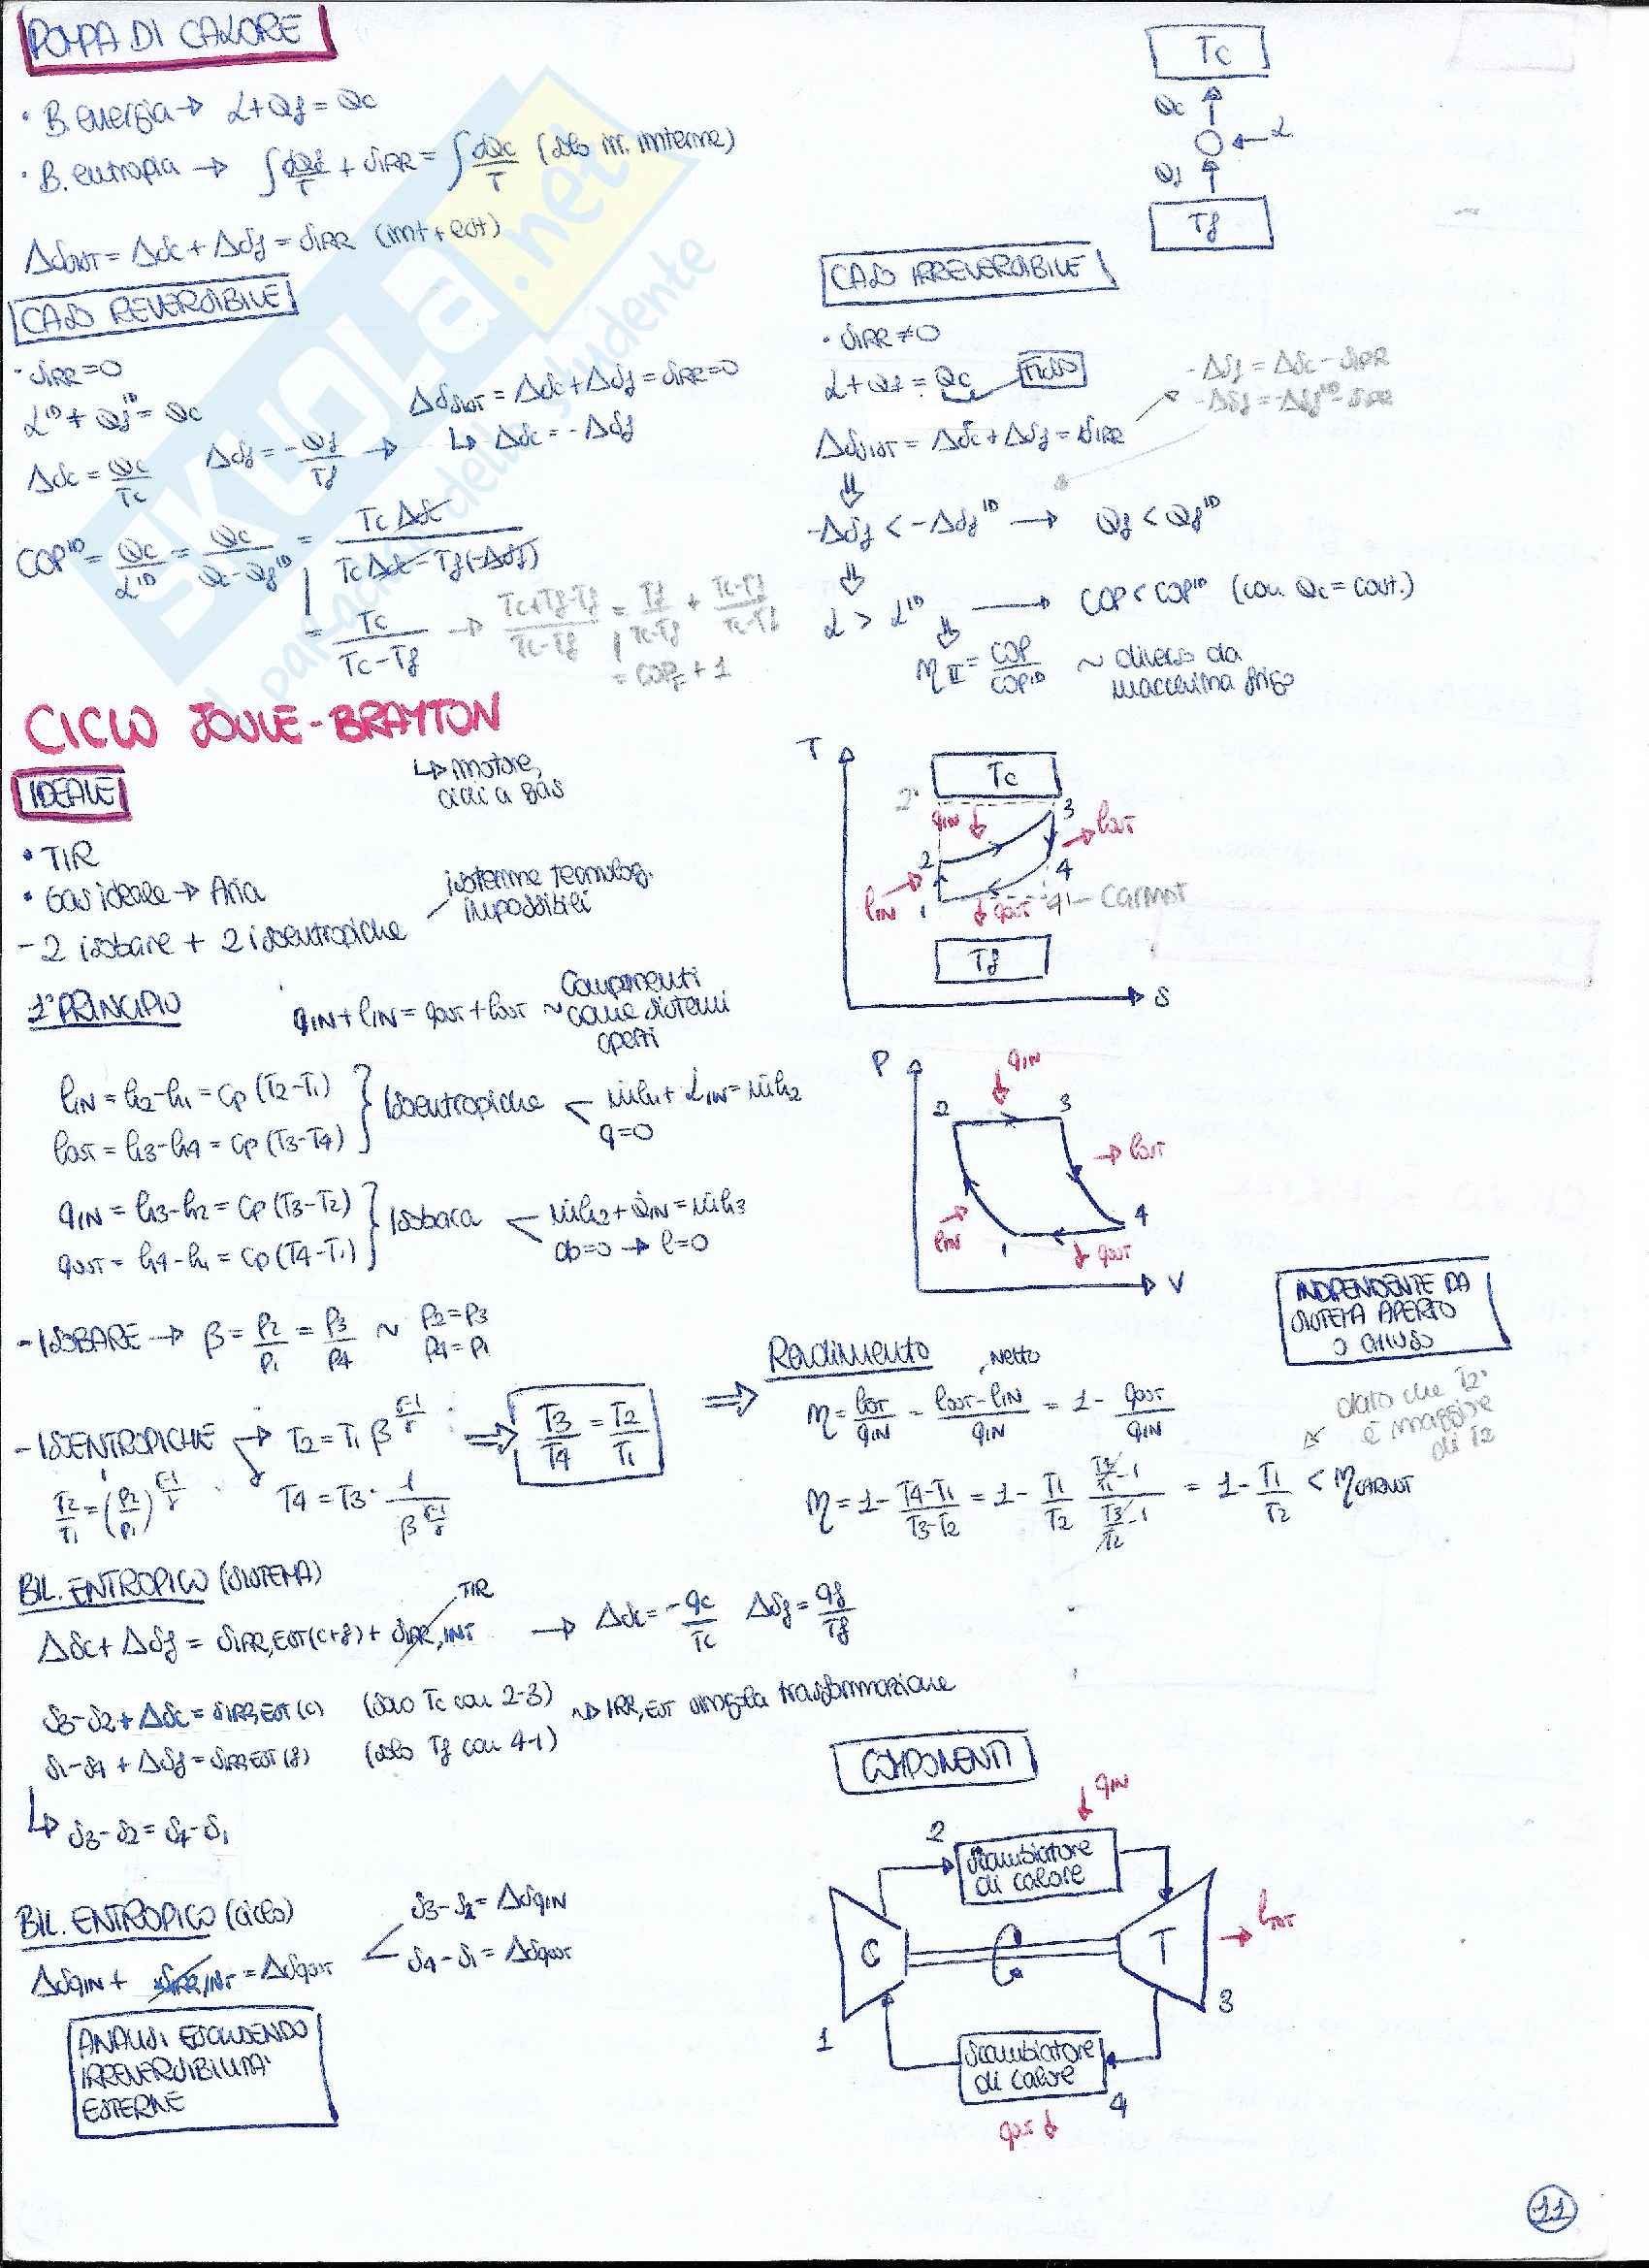 POMPA DI CALORE
Tc
Qc
L
Qf
Tf
• B. energia → L+Qf = Qc
• B. entropia → ∫dQf/T + SIRR = ∫dQc/T (solo irr. interne)
ΔSTOT = ΔSc + ΔSf = SIRR (int + est)
CASO REVERSIBILE
• SIRR = 0
L^ID + Qf^ID = Qc
ΔSTOT = ΔSc + ΔSf = SIRR = 0
ΔSc = Qc/Tc ΔSf = -Qf/Tf → ↳ ΔSc = -ΔSf
COP^ID = Qc/L^ID = Qc/(Qc-Qf^ID) = TcΔSc/(TcΔSc-Tf(-ΔSf))
= Tc/(Tc-Tf) → (Tc+Tf-Tf)/(Tc-Tf) = Tf/(Tc-Tf) + (Tc-Tf)/(Tc-Tf)
= COPF + 1
CASO IRREVERSIBILE
• SIRR ≠ 0
L+Qf = Qc FISSO
-ΔSf = ΔSc - SIRR
-ΔSf = -ΔSf^ID - SIRR
ΔSTOT = ΔSc + ΔSf = SIRR
⇓
-ΔSf < -ΔSf^ID → Qf < Qf^ID
⇓
L > L^ID → COP < COP^ID (con Qc = cost.)
⇓
ηII = COP/COP^ID ~ diverso da
macchina frigo
CICLO JOULE-BRAYTON
↳ motore,
cicli a gas
IDEALE
• TIR
• Gas ideale → Aria
- 2 isobare + 2 isoentropiche
isoterme tecnolog.
impossibili
T
Tc
2'
qIN
3
lOUT
2
4
lIN
1
qOUT
4' - CARNOT
Tf
S
1° PRINCIPIO
qIN + lIN = qOUT + lOUT ~ componenti
come sistemi
aperti
lIN = h2-h1 = cp(T2-T1)
lOUT = h3-h4 = cp(T3-T4)
} Isoentropiche < ṁh1 + L̇IN = ṁh2
q=0
qIN = h3-h2 = cp(T3-T2)
qOUT = h4-h1 = cp(T4-T1)
} Isobara < ṁh2 + Q̇IN = ṁh3
dp=0 → l=0
P
qIN
2
3
lOUT
lIN
1
4
qOUT
V
INDIPENDENTE DA
SISTEMA APERTO
O CHIUSO
- ISOBARE → β = P2/P1 = P3/P4 ~ P2=P3
P4=P1
- ISOENTROPICHE → T2 = T1 β^((γ-1)/γ)
T2/T1 = (P2/P1)^((γ-1)/γ) T4 = T3 · 1/β^((γ-1)/γ)
⇒ T3/T4 = T2/T1 ⇒
Rendimento
Netto
η = lOUT/qIN = (lOUT-lIN)/qIN = 1 - qOUT/qIN
dato che T2'
è maggiore
di T2
η = 1 - (T4-T1)/(T3-T2) = 1 - T1/T2 (T4/T1-1)/(T3/T2-1) = 1 - T1/T2 < ηCARNOT
BIL. ENTROPICO (SISTEMA)
TIR
ΔSc + ΔSf = SIRR,EST(c+f) + SIRR,INT → ΔSc = -qc/Tc ΔSf = qf/Tf
S3-S2 + ΔSc = SIRR,EST(c) (solo Tc con 2-3) ~> IRR,EST singola trasformazione
S1-S4 + ΔSf = SIRR,EST(f) (solo Tf con 4-1)
↳ S3-S2 = S4-S1
BIL. ENTROPICO (ciclo)
ΔSqIN + SIRR,INT = ΔSqOUT
S3-S2 = ΔSqIN
S4-S1 = ΔSqOUT
ANALISI ESCLUDENDO
IRREVERSIBILITA'
ESTERNE
COMPONENTI
qIN
2
Scambiatore
di calore
C
T
lOUT
3
1
Scambiatore
di calore
4
qOUT
11
SKUOLA.net
il paradiso dello studente